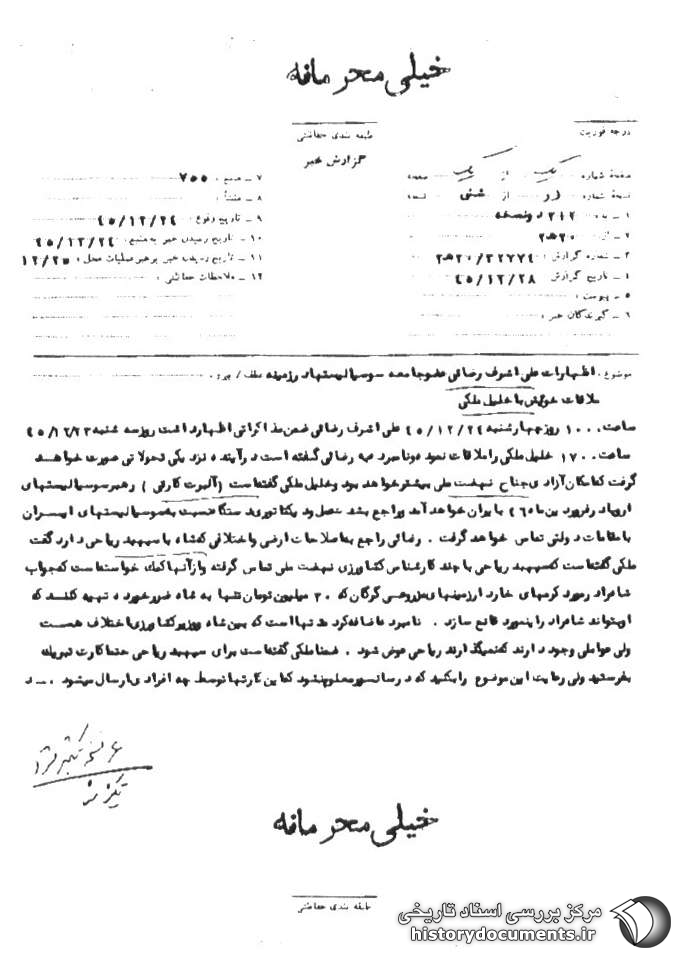 خیلی محرمانه
درجه فوریت
طبقه بندی حفاظتی
گزارش خبر
صفحهٔ شماره یک از یک صفحه
نسخهٔ شماره دو از شش نسخه
۱ ــ به: ۲+۳ دونسخه
۲ ــ از: ۲۰هـ۳
۳ ــ شماره گزارش: ۳۲۷۷۴/ ۲۰هـ۳
۴ ــ تاریخ گزارش ۴۵/۱۲/۲۸
۵ ــ پیوست:
۶ ــ گیرندگان خبر:
۷ ــ منبع: ۷۵۵
۸ ــ منشأ:
۹ ــ تاریخ وقوع: ۴۵/۱۲/۲۴
۱۰ ــ تاریخ رسیدن خبر به منبع: ۴۵/۱۲/۲۴
۱۱ ــ تاریخ رسیدن خبر برهبر عملیات محل: ۱۲/۲۵
۱۲ ــ ملاحظات حفاظتی:
موضوع: اظهارات علی اشرف رضائی عضو جامعه سوسیالیستها در زمینه عطف / پیرو:
ملاقات خویش با خلیل ملکی
ساعت ۱۰۰۰ روز چهارشنبه ۴۵/۱۲/۲۴ علی اشرف رضائی ضمن مذاکراتی اظهار داشت روز سه شنبه ۴۵/۱۲/۲۳
ساعت ۱۷۰۰ خلیل ملکی را ملاقات نموده و نامبرده به رضائی گفته است در آینده نزدیکی تحولاتی صورت خواهد
گرفت که امکان آزادی جناح نهضت ملی بیشتر خواهد بود و خلیل ملکی گفته است (آلبرت کارتی) رهبر سوسیالیستهای
اروپا در فروردین ماه ۴۶ بایران خواهد آمد و راجع بشدت عمل ودیکتاتوری دستگاه نسبت به سوسیالیستهای ایران
با مقامات دولتی تماس خواهد گرفت. رضائی راجع به اصلاحات ارضی و اختلافی که شاه با سپهبد ریاحی دارد گفت
ملکی گفته است که سپهبد ریاحی با چند کارشناس کشاورزی نهضت ملی تماس گرفته و از آنها کمک خواسته است که جواب
شاه را در مورد کرمهای خاردار زمینهای مزروعی گرگان که ۳۰ میلیون تومان تنها به شاه ضرر خورده تهیه کنند که
او بتواند شاه را بنحوی قانع سازد. نامبرده اضافه کرد مدتها است که بین شاه و وزیر کشاورزی اختلاف هست
ولی عواملی وجود دارند که نمیگذارند ریاحی عوض شود. ضمنا ملکی گفته است برای سپهبد ریاحی حتما کارت تبریک
بفرستید ولی رعایت این موضوع را بکنید که در سانسور معلوم نشود که این کارتها توسط چه افرادی ارسال میشود.
خیلی محرمانه
طبقه بندی حفاظتی
مرکز بررسی اسناد تاریخی
historydocuments.ir